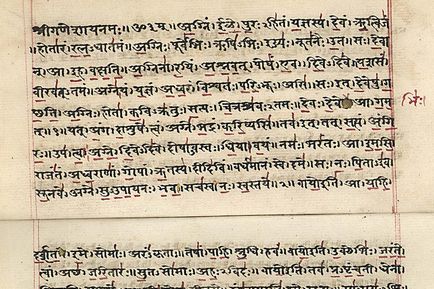 श्रीगणेशायनमः॥ॐ३म्॥अग्निं ईळे पुरःऽहितं यज्ञस्य देवं ऋत्विजं
होतारं रत्नऽधातमं अग्निः पूर्वेभिः ऋषिऽभिः ईड्यः नूतनैः उत सः देवान्
आ इह वक्षति अग्निना रयिं अश्नवत् पोषं एव दिवेऽदिवे यशसं
वीरवत्ऽतमं अग्ने यं यज्ञं अध्वरं विश्वतः परिऽभूः असि सः इत् देवेषु ग
च्छति अग्निः होता कविऽक्रतुः सत्यः चित्रश्रवःऽतमः देवः देवेभिः आ गम
त् १ यत् अंग दाशुषे त्वं अग्ने भद्रं करिष्यसि तव इत् तत् सत्यं अंगि
रः उप त्वा अग्ने दिवेऽदिवे दोषाऽवस्तः धिया वयं नमः भरंतः आ इमसि
राजंतं अध्वराणां गोपां ऋतस्य दीदिविं वर्धमानं स्वे दमे सः नः पिताऽइव
सूनवे अग्ने सुऽउपायनः भव सचस्व नः स्वस्तये २ वायो इति आ याहि
दर्शत इमे सोमाः अरंऽकृताः तेषां पाहि श्रुधि हवं वायो इति उक्थेभिः जरंते
त्वां अच्छ जरितारः सुतऽसोमाः अहःऽविदः वायो इति तव प्रऽपृंचती धेना
भिः